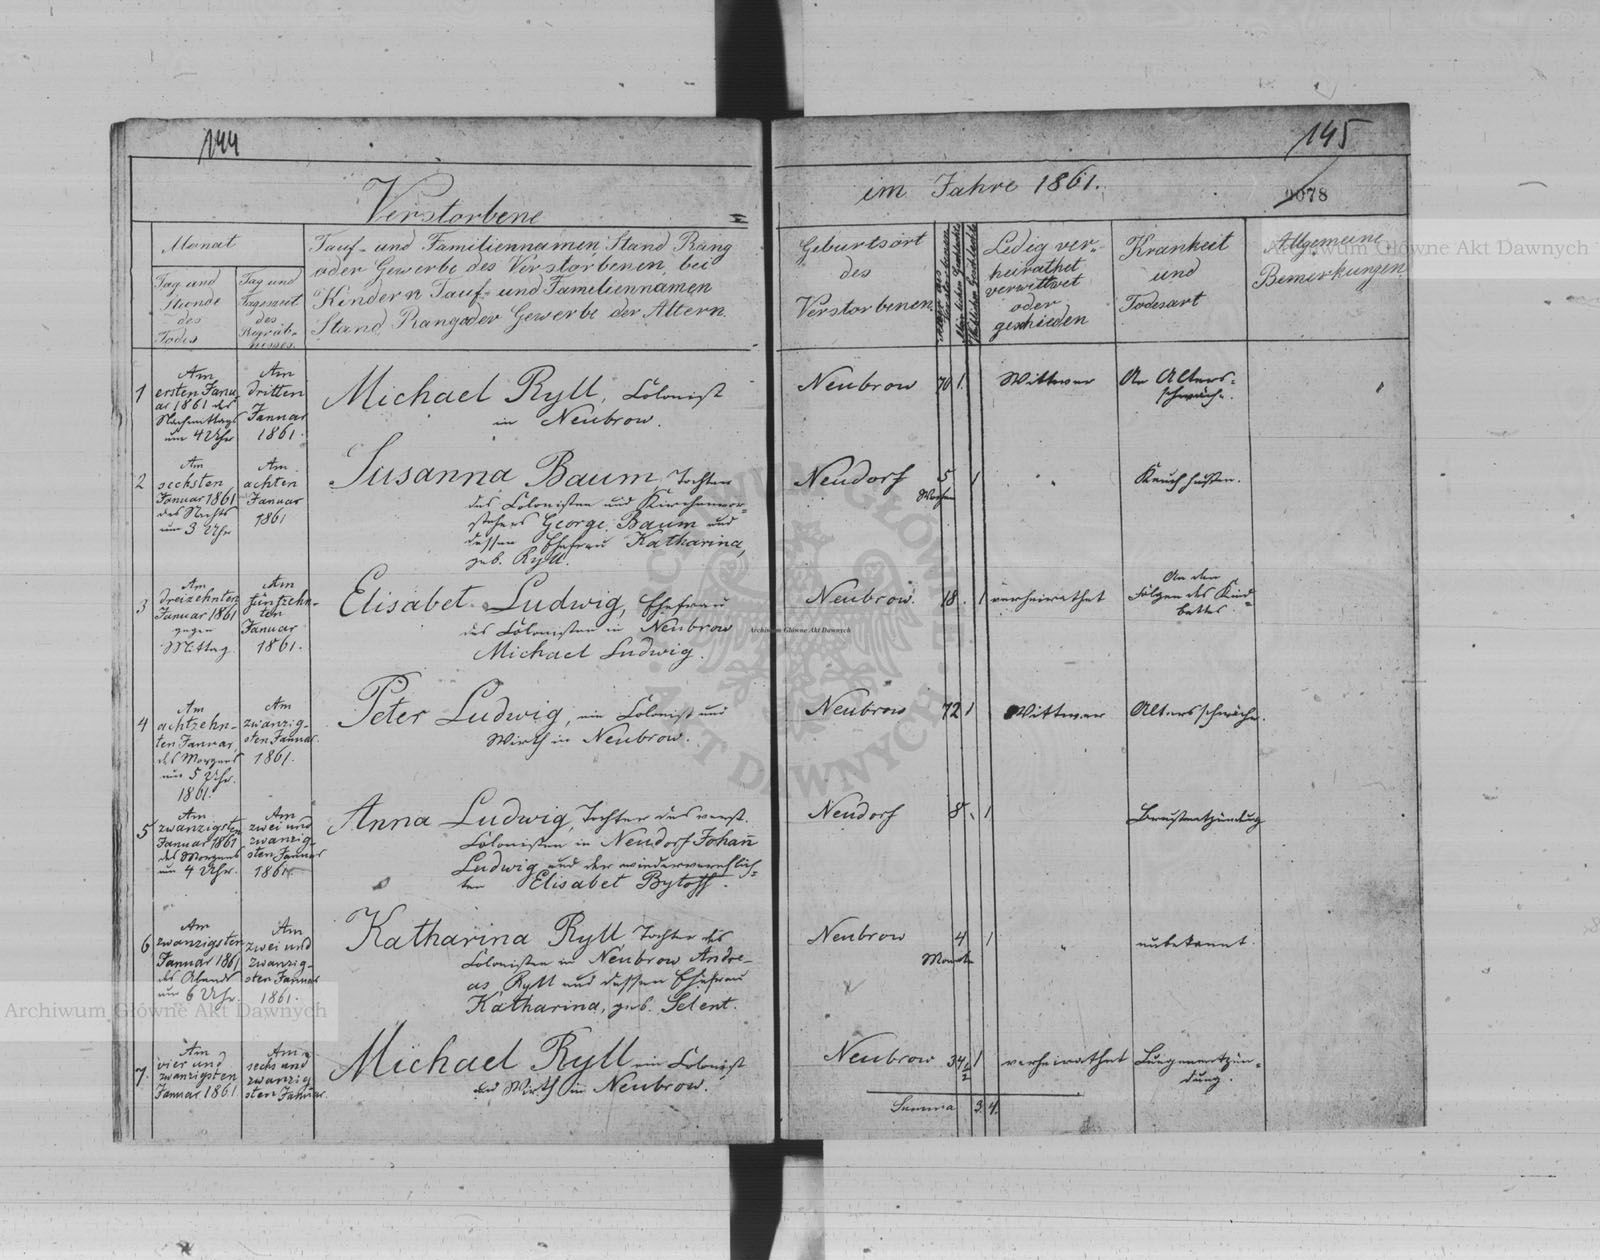 144
Verstorbene
Monat
Tag und
Stunde
des
Todes
Tag und
Tageszeit
des
Begräb-
nisses.
Tauf- und Familiennamen, Stand Rang
oder Gewerbe des Verstorbenen, bei
Kindern Tauf- und Fameliennamen
Stand, Rang oder Gewerbe der Altern.
1
Am
ersten Janu
ar 1861 des
Nachmittags
um 4 Uhr
Am
dritten
Januar
1861.
Michael Ryll, Colonist
in Neubrow.
2
Am
sechsten
Januar 1861
des Nachts
um 3 Uhr
Am
achten
Januar
1861
Susanna Baum, Tochter
des Colonisten und Kirchenvor-
stehers George Baum und
dessen Ehefrau Katharina,
geb. Ryll.
3
Am
dreizehnten
Januar 1861
gegen
Mittag.
Am
fünfzehn-
ten
Januar
1861.
Elisabet Ludwig, Ehefrau
des Colonisten in Neubrow
Michael Ludwig.
4
Am
achtzehn-
ten Januar,
des Morgens
um 5 Uhr.
1861.
Am
zwanzig-
sten Januar.
1861.
Peter Ludwig, ein Colonist und
Wirth in Neubrow.
5
Am
zwanzigsten
Januar 1861
des Morgens
um 4 Uhr.
Am
zwei und
zwanzig-
sten Januar
1861.
Anna Ludwig, Tochter des verst.
Colonisten in Neudorf Johann
Ludwig und der wiederverehlich-
ten Elisabet Bytoff.
6
Am
zwanzigsten
Januar 1861
des Abends
um 6 Uhr.
Am
zwei und
zwanzig-
sten Januar
1861.
Katharina Ryll Tochter des
Colonisten in Neubrow Andre-
as Ryll und dessen Ehefrau
Katharina, geb. Selent.
7.
Am
vier und
zwanzigsten
Januar 1861.
Am
sechs und
zwanzig
sten Januar.
Michael Ryll ein Colonist
und Wirth in Neubrow.
145
im Jahre 1861.
2078
Geburtsort
des
Verstorbenen.
Alter des
Verstorbenen
Mänlichen Geschlechts
Weiblichen Geschlechts
Ledig ver-
heirathet
verwittwet
oder
geschieden
Krankeit
und
Todesart
Allgemeine
Bemerkungen
Neubrow 70 1. Wittwer An Alters-
schwäche.
Neudorf 5 1 Keuchhusten.
Wochen
Neubrow. 18. 1 verheirathet An den
Folgen des Kind-
bettes.
Neubrow 72 1 Wittwer Altersschwäche.
Neudorf 8. 1 Brustentzündung
Neubrow 4 1 " unbekannt.
Monate
Neubrow 34½ 1 verheirathet Lungenentzün-
dung.
Summa 3 4.
Archiwum Główne Akt Dawnych
Archiwum Główne Akt Dawnych
Archiwum Główne Akt Dawnych
ARCHIWUM GŁÓWNE
AKT DAWNYCH